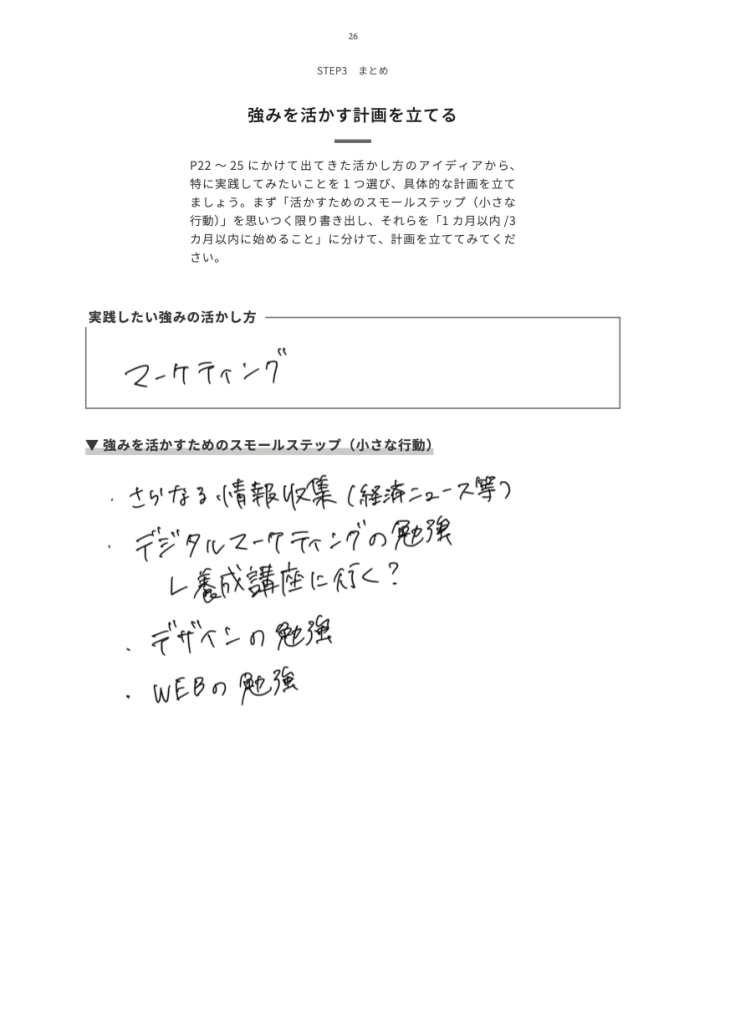 26
STEP3 まとめ
強みを活かす計画を立てる
P22 〜 25 にかけて出てきた活かし方のアイディアから、
特に実践してみたいことを 1 つ選び、具体的な計画を立て
ましょう。まず「活かすためのスモールステップ（小さな
行動）」を思いつく限り書き出し、それらを「1 カ月以内 /3
カ月以内に始めること」に分けて、計画を立ててみてくだ
さい。
実践したい強みの活かし方
マーケティング
▼ 強みを活かすためのスモールステップ（小さな行動）
・さらなる情報収集（経済ニュース等）
・デジタルマーケティングの勉強
└養成講座に行く？
・デザインの勉強
・WEBの勉強